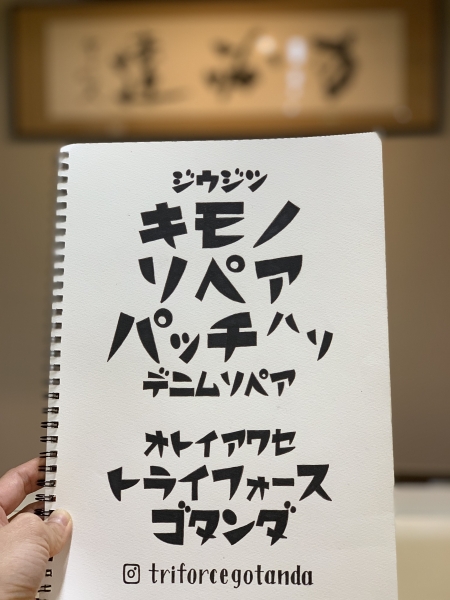 ジウジツ
キモノ
リペア
パッチハリ
デニムリペア
オトイアワセ
トライフォース
ゴタンダ
triforcegotanda